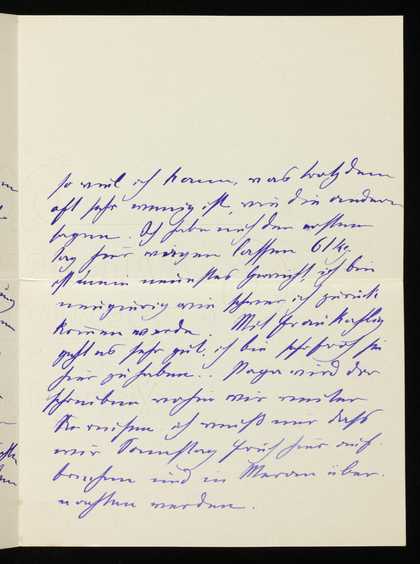 so viel ich kann, was trotzdem
oft sehr wenig ist, wie die andern
sagen. Ich habe mich den ersten
Tag hier wägen lassen 61 kg.
ist mein neuestes Gewicht, ich bin
neugierig wie schwer ich zurück
kommen werde. Mit Frau
geht es sehr gut, ich bin sehr froh sie
hier zu haben. Papa wird dir
schreiben wohin wir weiter
reisen ich weiß nur daß
wir Samstag früh hier auf-
brechen und in Meran über-
nachten werden.